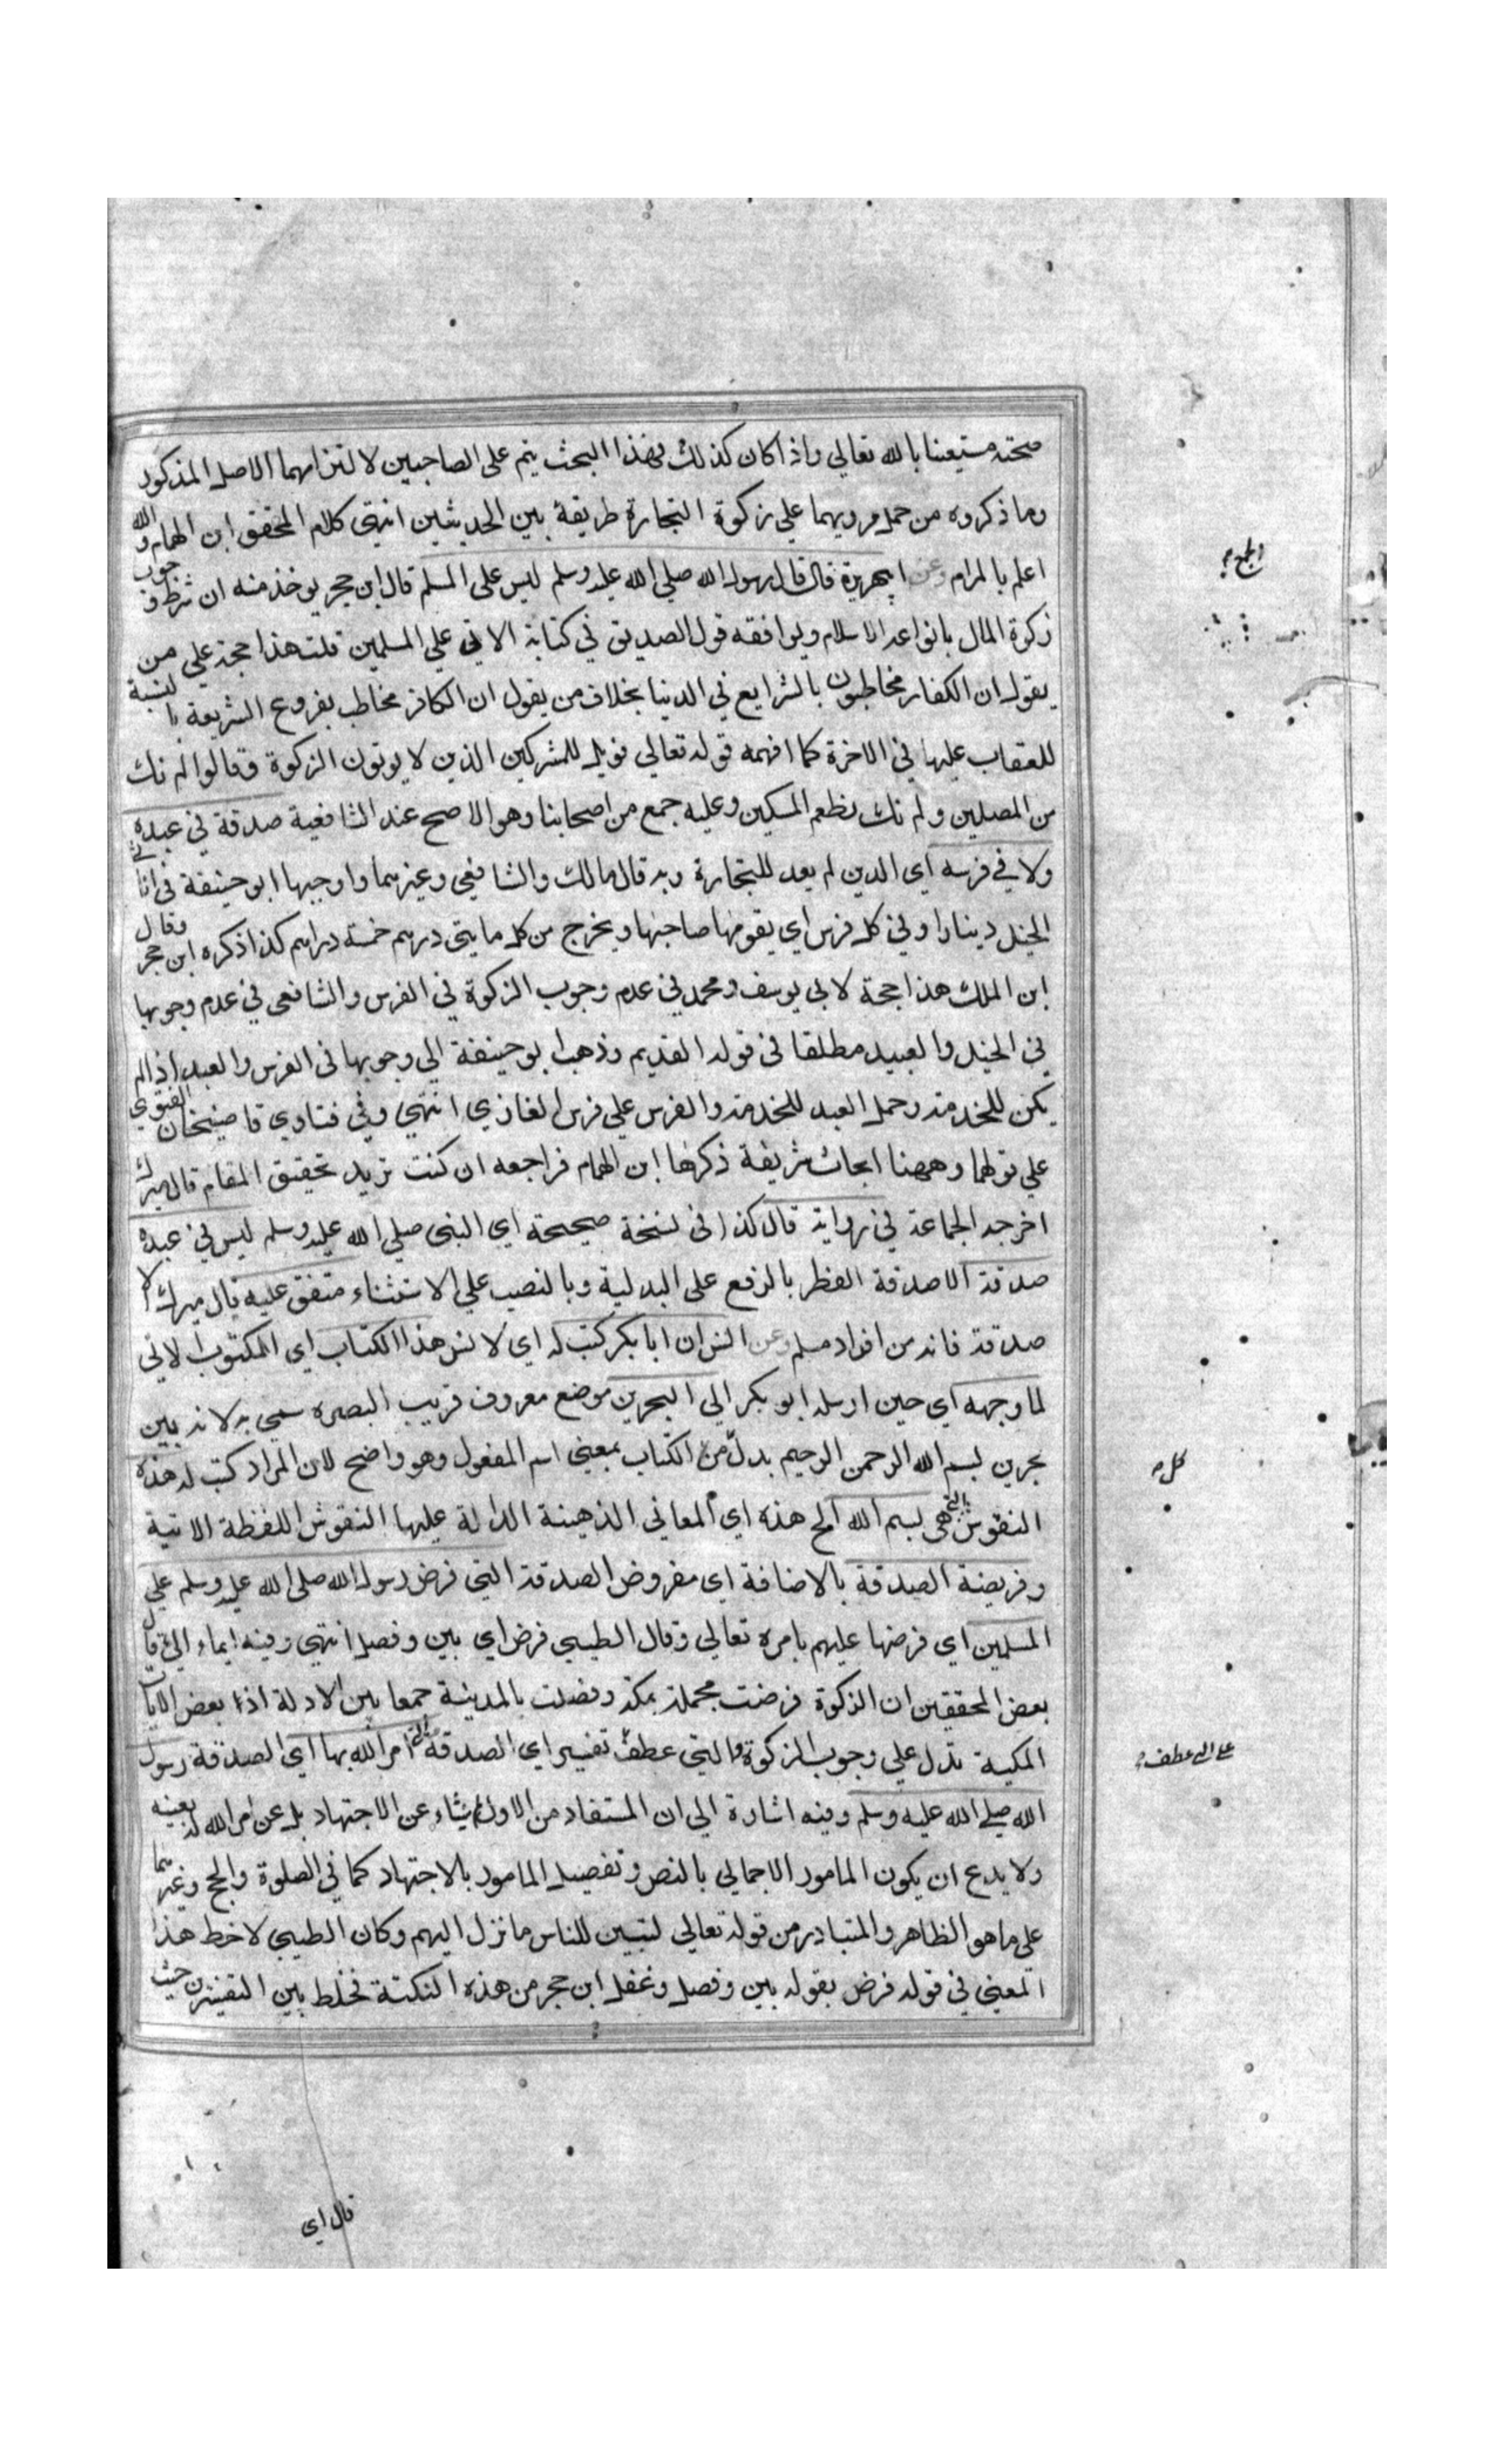 صحته مستعينا بالله تعالي واذا كان كذلك فهذا البحث يتم على الصاحبين لالتزامهما الاصل المذكور
وما ذكروه من حمل مرويهما علي زكوة التجارة طريقة بين الحديثين انتهى كلام المحقق ابن الهمام والله
اعلم بالمرام وعن ابي هريرة قال قال رسول الله صلي الله عليه وسلم ليس على المسلم قال ابن حجر يوخذ منه ان شرط وجوب
زكوة المال بانواعه الاسلام ويوافقه قول الصديق في كتابة الاتي علي المسلمين قلت هذا حجة علي من
يقول ان الكفار مخاطبون بالشرايع في الدنيا بخلاف من يقول ان الكافر مخاطب بفروع الشريعة بالنسبة
للعقاب عليها في الاخرة كما افهمه قوله تعالي فويل للمشركين الذين لا يوتون الزكوة وقالوا لم نك
من المصلين ولم نك نطعم المسكين وعليه جمع من اصحابنا وهو الاصح عند الشافعية صدقة في عبده
ولا في فرسه اي الذين لم يعد للتجارة وبه قال مالك والشافعي وغيرهما واوجبها ابو حنيفة في اناث
الخيل دينارا وفي كل فرس اي يقومها صاحبها ويخرج من كل مايتي درهم خمسة دراهم كذا ذكره ابن حجر وقال
ابن الملك هذا حجة لابي يوسف ومحمد في عدم وجوب الزكوة في الفرس والشافعي في عدم وجوبها
في الخيل والعبيد مطلقا في قوله القديم وذهب ابو حنيفة الي وجوبها في الفرس والعبد اذا لم
يكن للخدمة وحمل العبد للخدمة والفرس علي فرس الغازي انتهي وفي فتاوي قاضيخان الفتوي
علي قولهما وههنا ابحاث شريفة ذكرها ابن الهمام فراجعه ان كنت تريد تحقيق المقام قال ميرك
اخرجه الجماعة في رواية قال كذا في نسخة صحيحة اي النبي صلي الله عليه وسلم ليس في عبده
صدقة الا صدقة الفطر بالرفع على البدلية وبالنصب علي الاستثناء متفق عليه قال ميرك الا
صدقة فانه من افراد مسلم وعن انس ان ابا بكر كتب له اي لانس هذا الكتاب اي المكتوب الاتي
لما وجهه اي حين ارسله ابو بكر الي البحرين موضع معروف قريب البصره سمي به لانه بين
بحرين بسم الله الرحمن الرحيم بدل من الكتاب بمعني اسم المفعول وهو واضح لان المراد كتب له هذه
النقوش التي هي بسم الله الخ هذه اي المعاني الذهينة الدالة عليها النقوش اللفظة الاتية
وفريضة الصدقة بالاضافة اي مفروض الصدقة التي فرض رسول الله صلي الله عليه وسلم علي
المسلمين اي فرضها عليهم بامره تعالي وقال الطيبي فرض اي بين وفصل انتهي وفيه ايماء الي قال
بعض المحققين ان الزكوة فرضت مجملة بمكة وفصلت بالمدينة جمعا بين الادلة اذا بعض الايات
المكية تدل علي وجوب الزكوة والتي عطف تفسير اي الصدقة التي امر الله بها اي الصدقة رسول
الله صلي الله عليه وسلم وفيه اشارة الي ان المستفاد من الاول شاء عن الاجتهاد بل عن امر الله له بعينه
ولا يدع ان يكون المامور الاجمالي بالنص وتفصيل المامور بالاجتهاد كما في الصلوة والحج وغيرهما
علي ما هو الظاهر والمتبادر من قوله تعالي لتبين للناس ما نزل اليهم وكان الطيبي لاحظ هذا
المعني في قوله فرض بقوله بين وفصل وغفل ابن حجر من هذه النكتة فخلط بين التفسيرين حيث
قال اي